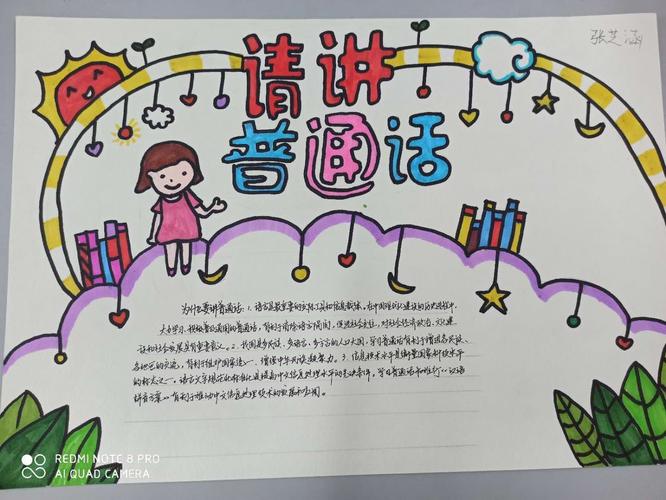 张芝涵
请讲
普通话
为什么要讲普通话:1、语言是最重要的交际工具和信息载体,在中国现代化建设的历史进程中,
大力学习、积极普及通用的普通话,有利于消除语言隔阂,促进社会交往,对社会经济政治、文化建
设和社会发展具有重要意义。2、我国是多民族、多语言、多方言的人口大国,学习普通话有利于增进各民族、
各地区的交流,有利于维护国家统一,增强中华民族凝聚力。3、信息技术水平是衡量国家科技水平
的标志之一。语言文字规范化标准化是提高中文信息处理水平的先决条件,学习普通话和推行《汉语
拼音方案》有利于推动中文信息处理技术的发展和应用。
REDMI NOTE 8 PRO
AI QUAD CAMERA